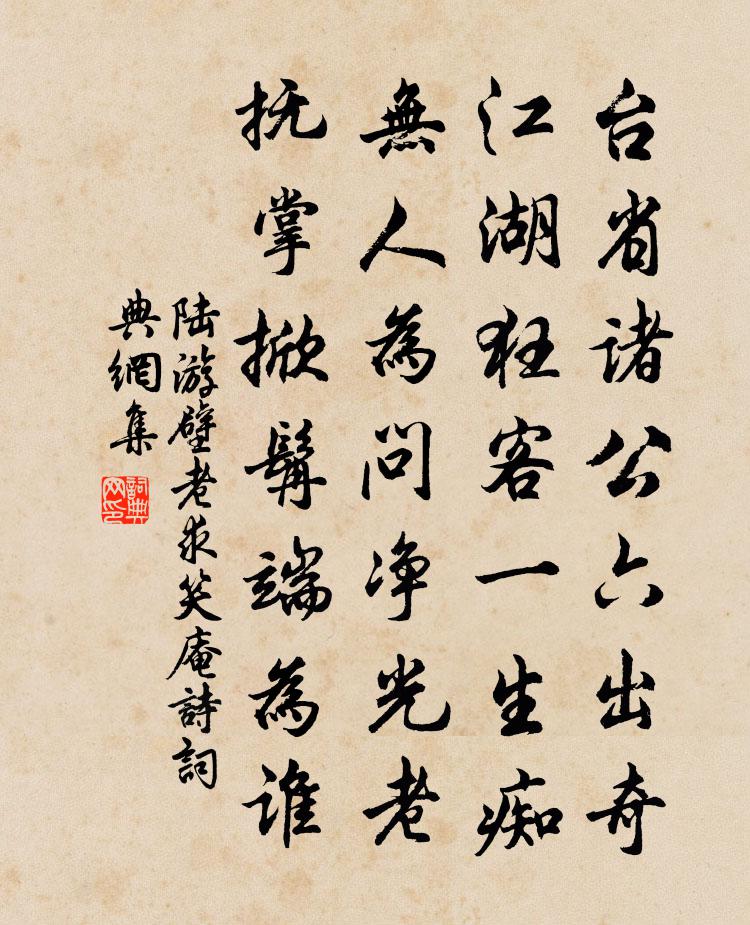 台省诸公六出奇
江湖狂客一生痴
無人為问净光老
抚掌掀髯端為谁
陆游璧老求笑庵詩詞
典網集
詞典
网印